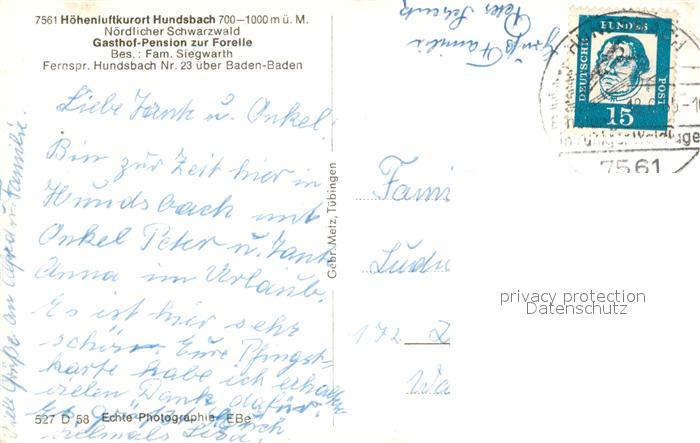 7561 Höhenluftkurort Hundsbach 700-1000 m ü. M.
Nördlicher Schwarzwald
Gasthof-Pension zur Forelle
Bes.: Fam. Siegwarth
Fernspr. Hundsbach Nr. 23 über Baden-Baden
Liebe Tante u. Onkel!
Bin zur Zeit hier in
Hundsbach mit
Onkel Peter u. Tante
Anna im Urlaub.
Es ist hier sehr
schön. Eure Pfingst-
karte habe ich erhalten
vielen Dank dafür.
Es grüßt Euch
vielmals
527 D 58 Echte Photographie EBe
Viele Grüße an Alfred u. Familie.
Gebr. Metz, Tübingen
Gruß Familie
Peter
DEUTSCHE
BUNDES
POST
15
7561
Fami
Ludw
172
privacy protection
Datenschutz